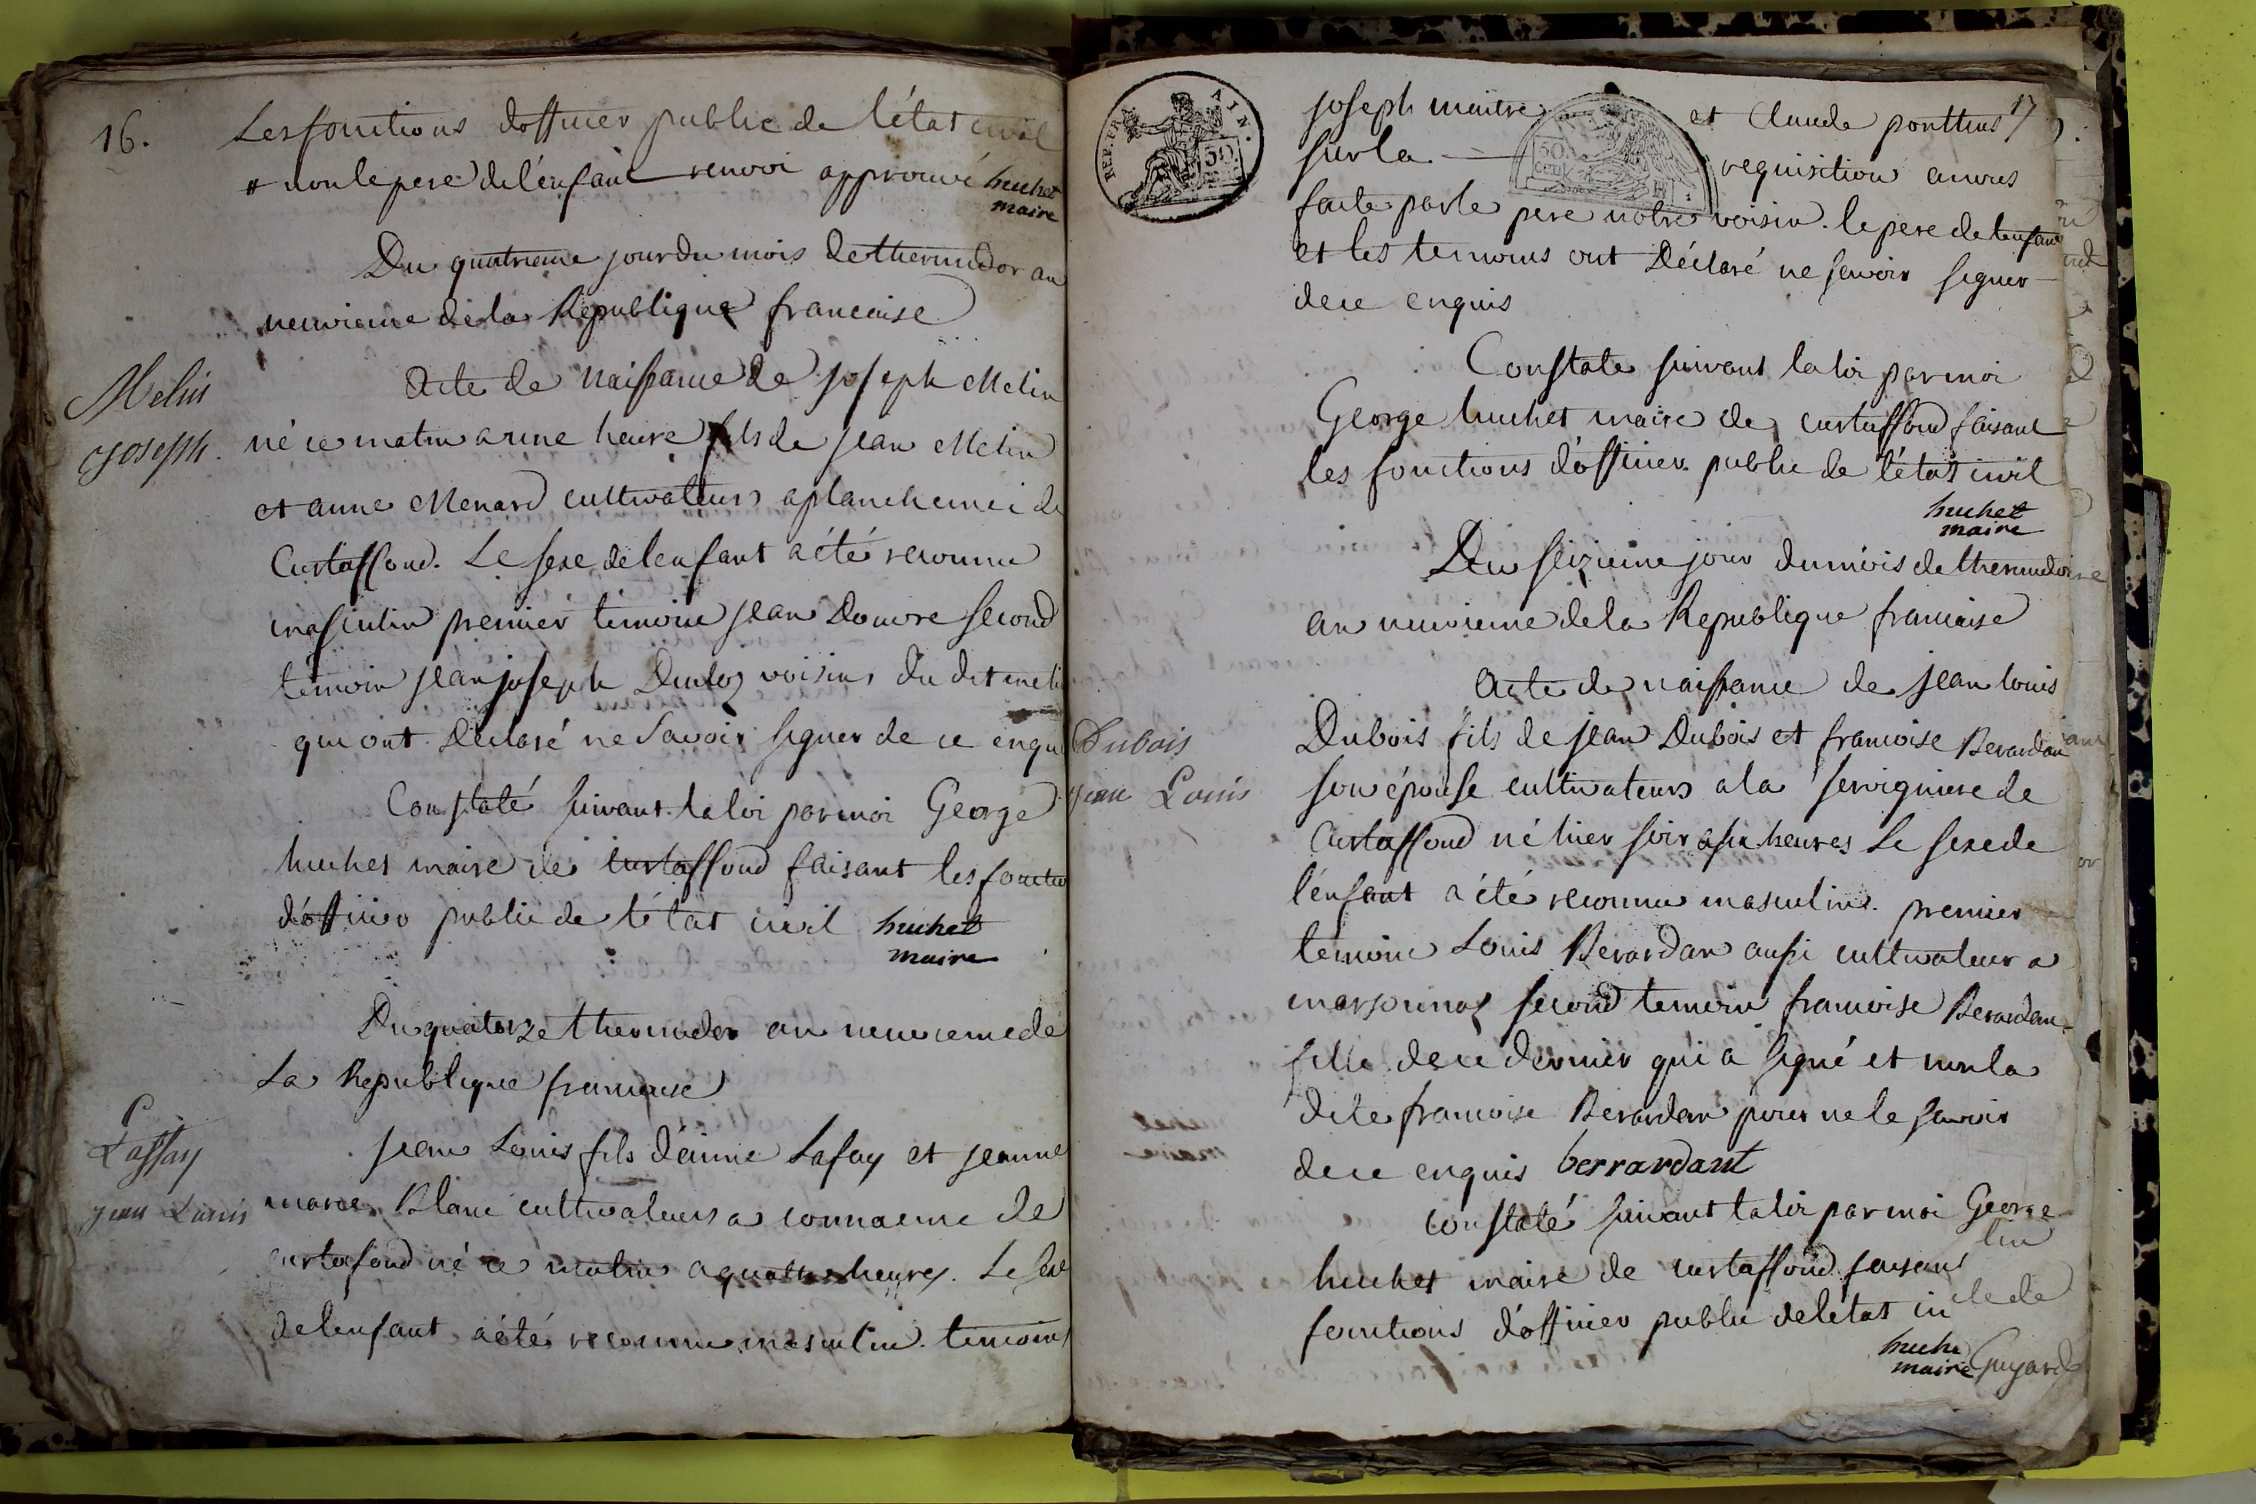 16.
Les fonctions d'officier public de l'état civil
# non le pere de l'enfant renvoi approuvé huchet
maire
Du quatrieme jour du mois de thermidor an
neuvieme de la Republique francaise
Melin
Joseph.
Acte de naissance de joseph Melin
né ce matin a une heure fils de jean Melin
et anne Menard cultivateurs a planchemei de
Curtaffond. Le sexe de lenfant a été reconnu
masculin premier temoin jean Douvre second
temoin jean joseph Ducloz voisins du dit meli
qui ont Declaré ne Savoir signer de ce enqu
Constaté suivant la loi par moi George
huchet maire de curtaffond faisant les fonctio
d'officier public de l'état civil huchet
maire
Du quatorze thermidor an neuvieme de
La Republique francaise
Laffay
jean Louis
jean Louis fils d'aimé Lafay et jeanne
marie Blanc cultivateurs a connaeme de
curtafond né ce matin a quatre heures. Le sexe
de lenfant a été reconnu masculin. temoins
17
REP. FRA AIN.
50
joseph maitre et Claude ponttus
sur la requisition a nous
50 Cen
faite par le pere notre voisin. le pere de lenfant
et les temoins ont Déclaré ne scavoir signer
de ce enquis
Constate suivant la loi par moi
George huchet maire de curtaffond faisant
les fonctions d'officier public de l'état civil
huchet
maire
Du seizieme jour du mois de thermidor
an neuvieme de la Republique francaise
Dubois
jean Louis
Acte de naissance de jean louis
Dubois fils de jean Dubois et francoise Berardan
son épouse cultivateurs a la servigniere de
Curtaffond né hier soir a six heures Le sexe de
l'énfant a été reconnu masculin. premier
temoin Louis Berardan aussi cultivateur a
marsonnas second temoin francoise Berardan
fille de ce dernier qui a signé et non la
dite francoise Berardan pour ne le scavoir
de ce enquis berrardant
Constaté suivant la loi par moi George
huchet maire de curtaffond faisant
fonctions d'officier public de letat ci
huche
maire
Guyard